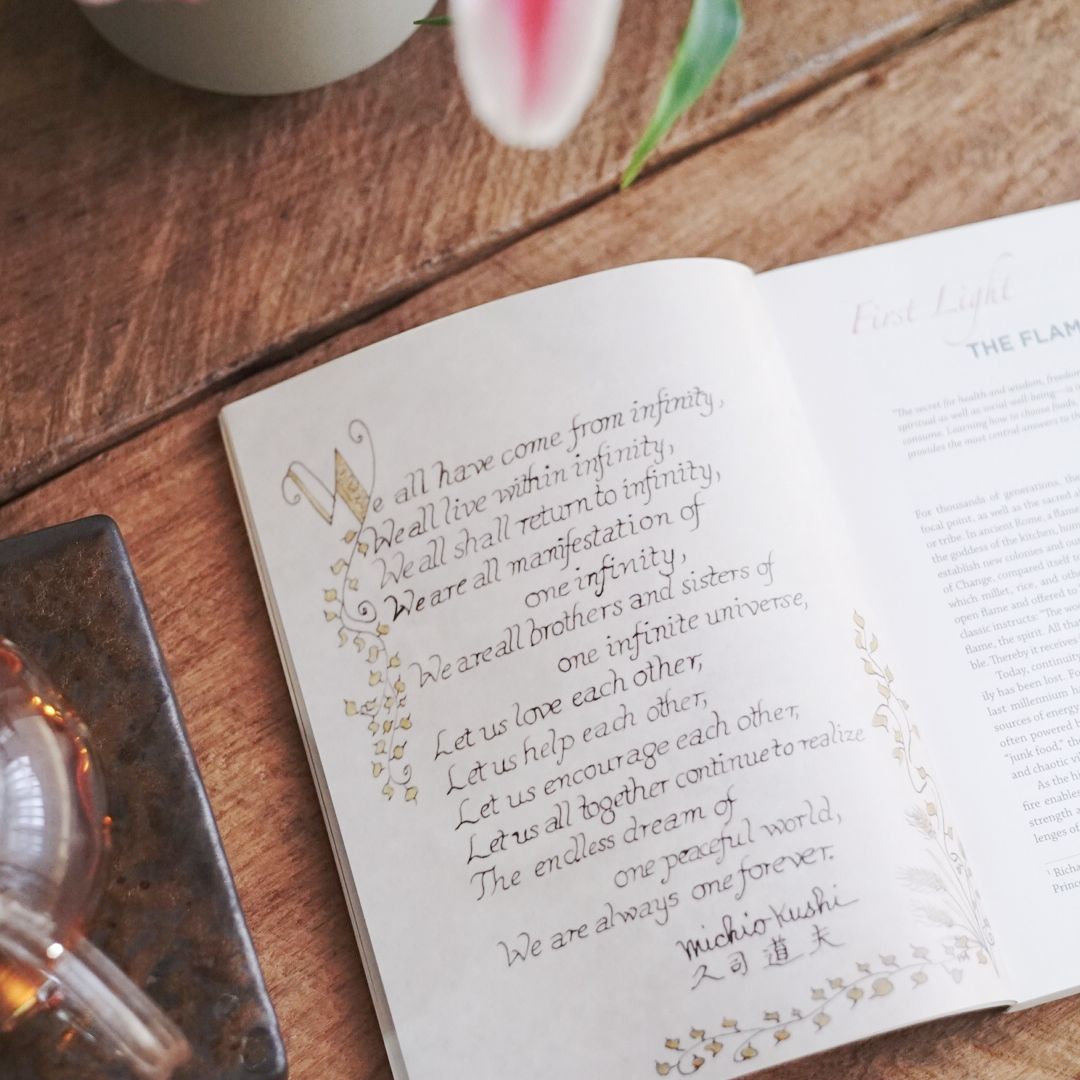 We all have come from infinity,
We all live within infinity,
We all shall return to infinity,
We are all manifestation of
one infinity,
We are all brothers and sisters of
one infinite universe,
Let us love each other,
Let us help each other,
Let us encourage each other,
Let us all together continue to realize
The endless dream of
one peaceful world,
We are always one forever.
Michio Kushi
久司道夫
First Light
THE FLAM
"The secret for health and wisdom, freedom
spiritual as well as social well-being—is
consume. Learning how to choose foods,
provides the most central answers to th
For thousands of generations, the
focal point, as well as the sacred a
or tribe. In ancient Rome, a flame
the goddess of the kitchen, hom
establish new colonies and out
of Change, compared itself to
which millet, rice, and othe
open flame and offered to
classic instructs: "The woo
flame, the spirit. All that
ble. Thereby it receives
Today, continuity
ily has been lost. Fo
last millennium h
sources of energy
often powered b
"junk food," th
and chaotic vi
As the hi
fire enables
strength a
lenges of
1 Richa
Prince